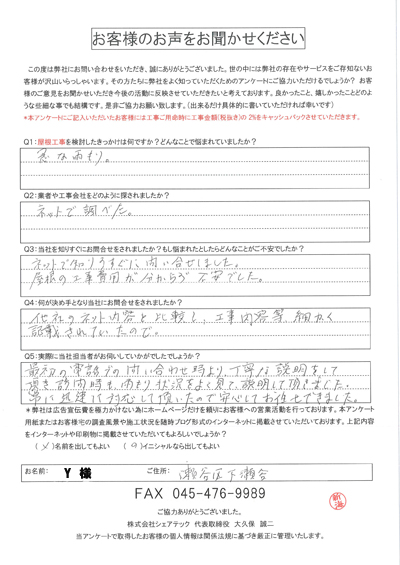 お客様のお声をお聞かせください
この度は弊社にお問い合わせをいただき、誠にありがとうございました。世の中には弊社の存在やサービスをご存知ないお
客様が沢山いらっしゃいます。その方たちに弊社をよく知っていただくためのアンケートにご協力いただけるでしょうか？ お客
様のご意見をお聞かせいただき今後の活動に反映させていただきたいと考えております。良かったこと、嬉しかったことどのよ
うな些細な事でも結構です。是非ご協力お願い致します。（出来るだけ具体的に書いていただければ幸いです）
*本アンケートにご記入いただいたお客様には工事ご用命時に工事金額(税抜き)の 2%をキャッシュバックさせていただきます。
Q1:屋根工事を検討したきっかけは何ですか？どんなことで悩まれていましたか？
急な雨もり。
Q2:業者や工事会社をどのように探されましたか？
ネットで調べた。
Q3:当社を知りすぐにお問合せをされましたか？もし悩まれたとしたらどんなことがご不安でしたか？
ネットで知りすぐに問い合せしました。
屋根の工事費用が分からず不安でした。
Q4:何が決め手となり当社にお問合せをされましたか？
他社のネット内容と比較し、工事内容等細かく
記載されていたので。
Q5:実際に当社担当者がお伺いしていかがでしたでしょうか？
最初の電話での問い合わせ時より、丁寧な説明をして
頂き訪問時も、雨もり状況をよく見て、説明して頂きました。
常に迅速に対応して頂いたので安心してお任せできました。
*弊社は広告宣伝費を極力かけない為にホームページだけを頼りにお客様への営業活動を行っております。本アンケート
用紙またはお客様宅の調査風景や施工状況を随時ブログ形式のインターネットに掲載させていただいております。上記内容
をインターネットや印刷物に掲載させていただいてもよろしいでしょうか？
( )名前を出してもよい (○)イニシャルなら出してもよい
お名前: Y 様 ご住所: 瀬谷区下瀬谷
FAX 045-476-9989
ご協力ありがとうございました。
株式会社シェアテック 代表取締役 大久保 誠二
当アンケートで取得したお客様の個人情報は関係法規に基づき厳正に管理いたします。